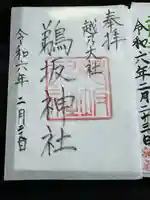 令和六年二月二十三日
奉拝
越乃大社
鵜坂神社
令和六年 二月